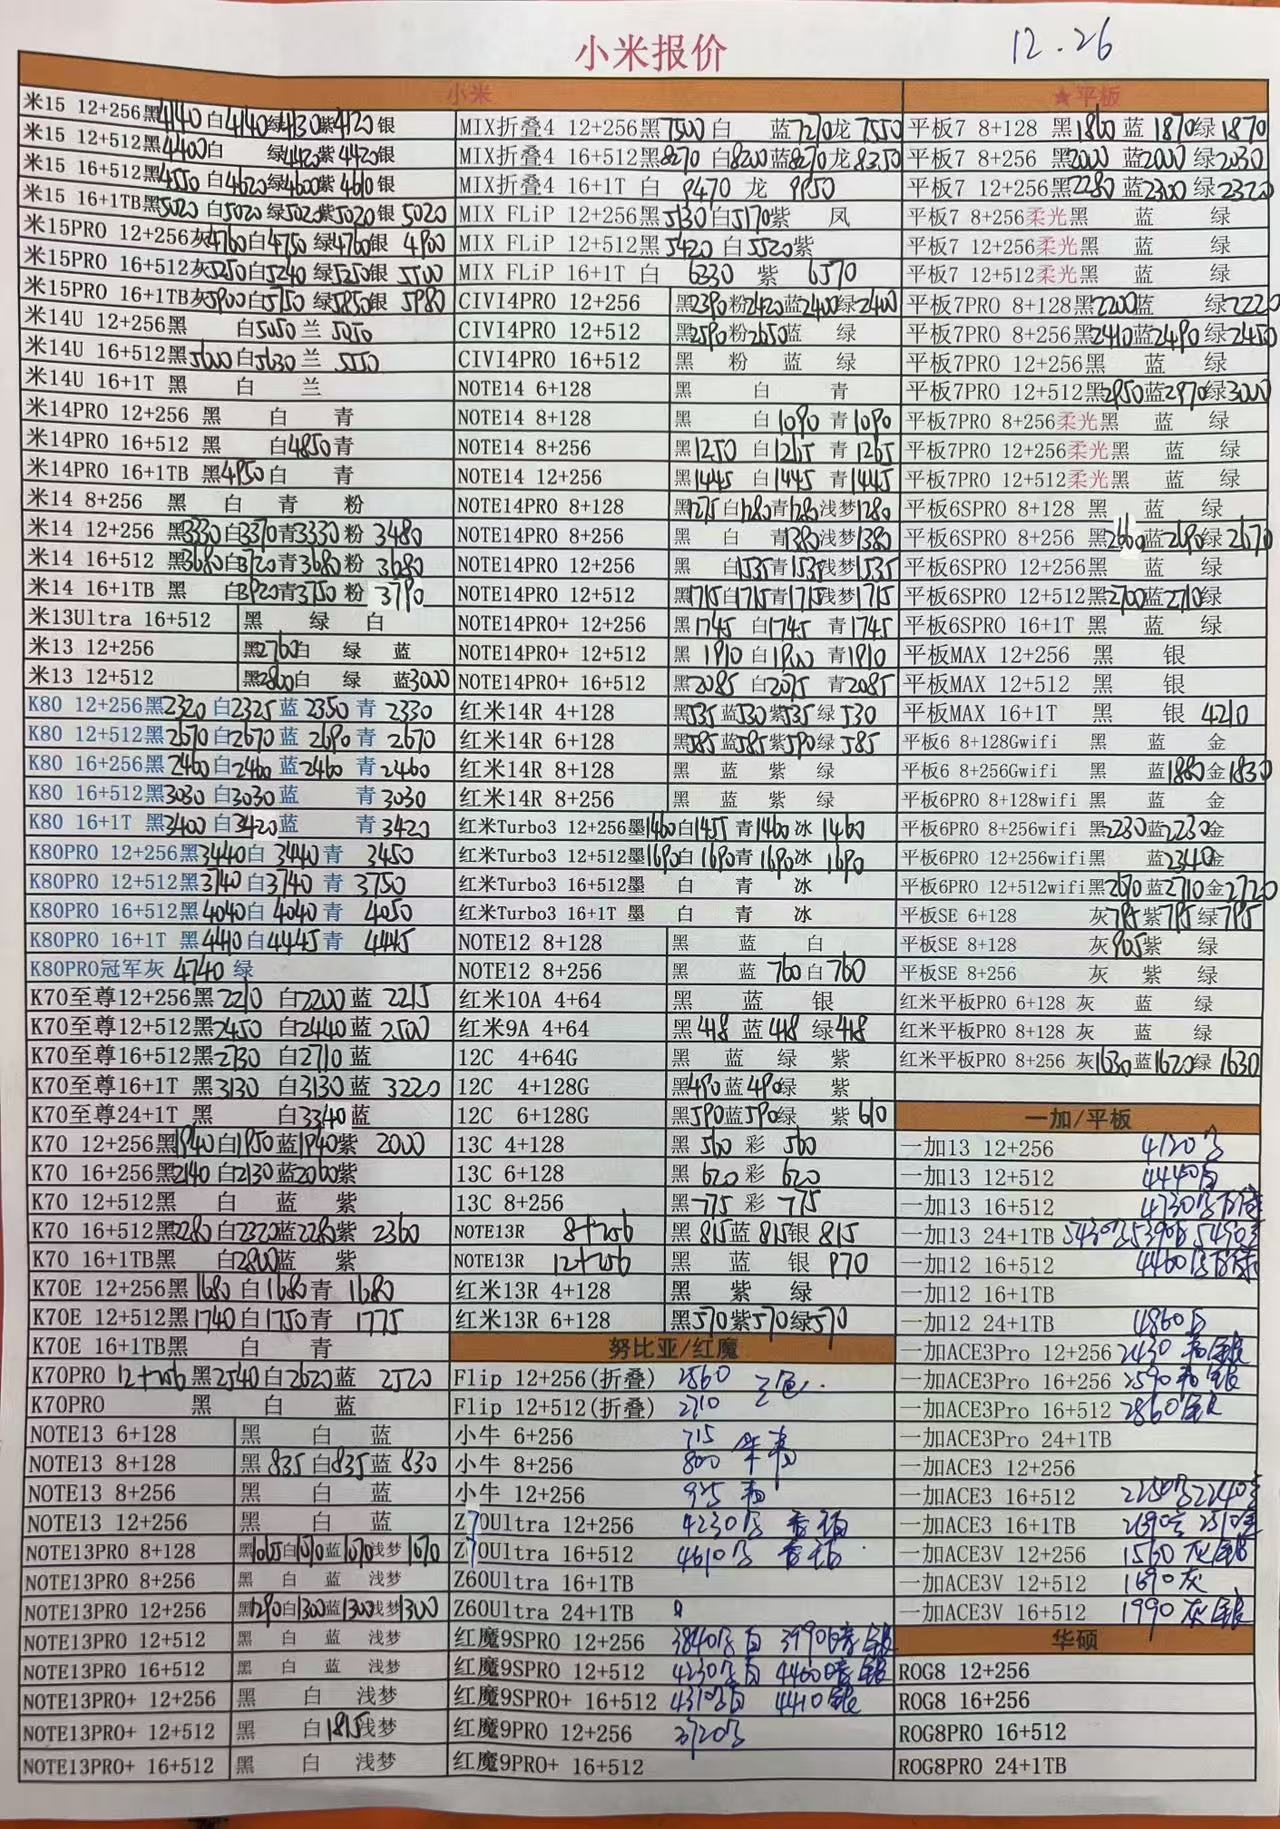 小米报价
12.26
小米
米15 12+256黑4140白4140绿4130紫4120银
米15 12+512黑4400白 绿4420紫4420银
米15 16+512黑4550白4620绿4600紫4610银
米15 16+1TB黑5020白5020绿5020紫5020银 5020
米15PRO 12+256灰4760白4750绿4760银 4900
米15PRO 16+512灰5250白5240绿5250银
米15PRO 16+1TB灰5900白5750绿5850银 5980
米14U 12+256黑 白5050兰 5050
米14U 16+512黑5600白5630兰 5550
米14U 16+1T 黑 白 兰
米14PRO 12+256 黑 白 青
米14PRO 16+512 黑 白4850青
米14PRO 16+1TB 黑4950白 青
米14 8+256 黑 白 青 粉
米14 12+256 黑3330白3370青3330粉 3480
米14 16+512 黑3680白3720青3680粉 3680
米14 16+1TB 黑 白3920青3750粉 3790
米13Ultra 16+512 黑 绿 白
米13 12+256 黑2760白 绿 蓝
米13 12+512 黑2800白 绿 蓝3000
K80 12+256黑2320白2325蓝2350青 2330
K80 12+512黑2670白2670蓝2690青 2670
K80 16+256黑2460白2460蓝2460青2460
K80 16+512黑3030白3030蓝 青3030
K80 16+1T 黑3400白3420蓝 青3420
K80PRO 12+256黑3440白3440青 3450
K80PRO 12+512黑3740白3740青 3750
K80PRO 16+512黑4040白4040青 4050
K80PRO 16+1T 黑4440白4445青 4445
K80PRO冠军灰 4740 绿
K70至尊12+256黑2210 白2200蓝 2215
K70至尊12+512黑2450 白2440蓝2500
K70至尊16+512黑2730 白2710蓝
K70至尊16+1T 黑3130 白3130蓝 3220
K70至尊24+1T 黑 白3340蓝
K70 12+256黑1940白1950蓝1940紫 2000
K70 16+256黑2140白2130蓝2060紫
K70 12+512黑 白 蓝 紫
K70 16+512黑2280白2320蓝2280紫 2360
K70 16+1TB黑 白2800蓝 紫
K70E 12+256黑1680白1680青 1680
K70E 12+512黑1740白1750青 1775
K70E 16+1TB黑 白 青
K70PRO 12+256黑2540白2620蓝 2520
K70PRO 黑 白 蓝
NOTE13 6+128 黑 白 蓝
NOTE13 8+128 黑835白835蓝 830
NOTE13 8+256 黑 白 蓝
NOTE13 12+256 黑 白 蓝
NOTE13PRO 8+128 黑1065白1070蓝1070浅梦1070
NOTE13PRO 8+256 黑 白 蓝 浅梦
NOTE13PRO 12+256 黑1290白1300蓝1300浅梦1300
NOTE13PRO 12+512 黑 白 蓝 浅梦
NOTE13PRO 16+512 黑 白 蓝 浅梦
NOTE13PRO+ 12+256 黑 白 浅梦
NOTE13PRO+ 12+512 黑 白1815浅梦
NOTE13PRO+ 16+512 黑 白 浅梦
MIX折叠4 12+256黑7500白 蓝7270龙7550
MIX折叠4 16+512黑8270白8200蓝8270龙8350
MIX折叠4 16+1T 白 9470 龙 9950
MIX FLiP 12+256黑5130白5170紫 凤
MIX FLiP 12+512黑5420白5520紫
MIX FLiP 16+1T 白 6330 紫 6570
CIVI4PRO 12+256 黑2390粉2420蓝2400绿2400
CIVI4PRO 12+512 黑2590粉2650蓝 绿
CIVI4PRO 16+512 黑 粉 蓝 绿
NOTE14 6+128 黑 白 青
NOTE14 8+128 黑 白1090青1090
NOTE14 8+256 黑1250 白1265青1265
NOTE14 12+256 黑1445 白1445青1445
NOTE14PRO 8+128 黑1275白1280青1280浅梦1280
NOTE14PRO 8+256 黑 白 青1380浅梦1380
NOTE14PRO 12+256 黑 白1535青1535浅梦1535
NOTE14PRO 12+512 黑1715白1715青1715浅梦1715
NOTE14PRO+ 12+256 黑1745 白1745 青1745
NOTE14PRO+ 12+512 黑1910白1900青1910
NOTE14PRO+ 16+512 黑2085白2075青2085
红米14R 4+128 黑535蓝530紫535绿530
红米14R 6+128 黑585蓝585紫590绿585
红米14R 8+128 黑 蓝 紫 绿
红米14R 8+256 黑 蓝 紫 绿
红米Turbo3 12+256墨1460白1455青1460冰 1460
红米Turbo3 12+512墨1690白1690青1690冰 1690
红米Turbo3 16+512墨 白 青 冰
红米Turbo3 16+1T 墨 白 青 冰
NOTE12 8+128 黑 蓝 白
NOTE12 8+256 黑 蓝760白760
红米10A 4+64 黑 蓝 银
红米9A 4+64 黑418蓝418绿418
12C 4+64G 黑 蓝 绿 紫
12C 4+128G 黑490蓝490绿 紫
12C 6+128G 黑590蓝590绿 紫610
13C 4+128 黑 560 彩 560
13C 6+128 黑 620 彩 620
13C 8+256 黑775 彩 775
NOTE13R 8+256 黑815蓝815银815
NOTE13R 12+256 黑 蓝 银970
红米13R 4+128 黑 紫 绿
红米13R 6+128 黑570紫570绿570
努比亚/红魔
Flip 12+256(折叠) 2560 三色.
Flip 12+512(折叠) 2710
小牛 6+256 715
小牛 8+256 800
小牛 12+256 925
Z70Ultra 12+256 4230
Z70Ultra 16+512 4610
Z60Ultra 16+1TB
Z60Ultra 24+1TB
红魔9SPRO 12+256 3840 3990
红魔9SPRO 12+512 4230 4460
红魔9SPRO+ 16+512 4310 4410银
红魔9PRO 12+256 3720
红魔9PRO+ 16+512
★平板
平板7 8+128 黑1860蓝 1870绿1870
平板7 8+256 黑2000蓝2000绿2030
平板7 12+256黑2280蓝2300绿2320
平板7 8+256柔光黑 蓝 绿
平板7 12+256柔光黑 蓝 绿
平板7 12+512柔光黑 蓝 绿
平板7PRO 8+128黑2200蓝 绿2220
平板7PRO 8+256黑2410蓝2490绿2450
平板7PRO 12+256黑 蓝 绿
平板7PRO 12+512黑2950蓝2970绿3000
平板7PRO 8+256柔光黑 蓝 绿
平板7PRO 12+256柔光黑 蓝 绿
平板7PRO 12+512柔光黑 蓝 绿
平板6SPRO 8+128 黑 蓝 绿
平板6SPRO 8+256 黑2660蓝2690绿2670
平板6SPRO 12+256黑 蓝 绿
平板6SPRO 12+512黑2700蓝2710绿
平板6SPRO 16+1T 黑 蓝 绿
平板MAX 12+256 黑 银
平板MAX 12+512 黑 银
平板MAX 16+1T 黑 银4210
平板6 8+128Gwifi 黑 蓝 金
平板6 8+256Gwifi 黑 蓝1880金1830
平板6PRO 8+128wifi 黑 蓝 金
平板6PRO 8+256wifi 黑2230蓝2230金
平板6PRO 12+256wifi黑 蓝2340金
平板6PRO 12+512wifi黑2670蓝2710金2720
平板SE 6+128 灰785紫785绿785
平板SE 8+128 灰905紫 绿
平板SE 8+256 灰 紫 绿
红米平板PRO 6+128 灰 蓝 绿
红米平板PRO 8+128 灰 蓝 绿
红米平板PRO 8+256 灰1630蓝1620绿 1630
一加/平板
一加13 12+256 4120
一加13 12+512 4440白
一加13 16+512 4730
一加13 24+1TB 5430 5390白 5490
一加12 16+512 4460
一加12 16+1TB
一加12 24+1TB 4860白
一加ACE3Pro 12+256 2430 银
一加ACE3Pro 16+256 2590 银
一加ACE3Pro 16+512 2860银
一加ACE3Pro 24+1TB
一加ACE3 12+256
一加ACE3 16+512 2250 2240
一加ACE3 16+1TB 2590 2510
一加ACE3V 12+256 1560灰银
一加ACE3V 12+512 1690灰
一加ACE3V 16+512 1990灰银
华硕
ROG8 12+256
ROG8 16+256
ROG8PRO 16+512
ROG8PRO 24+1TB